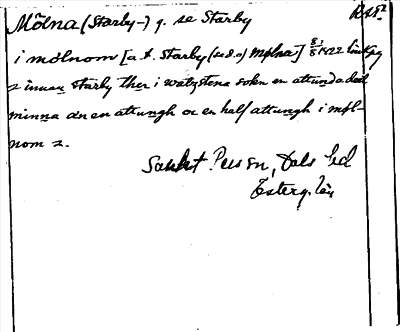 Mölna (Starby-) g. se Starby RAp.
i mølnom [a.t. Starby (se d.o) Mølna] 8/8 1422 Linkpg
z innan starby ther i watzstena sokn en attunda deel
minna än en attungh oc en half attungh i møl-
nom z.
Sankt Pers sn, Dals hd
Östergötl. län